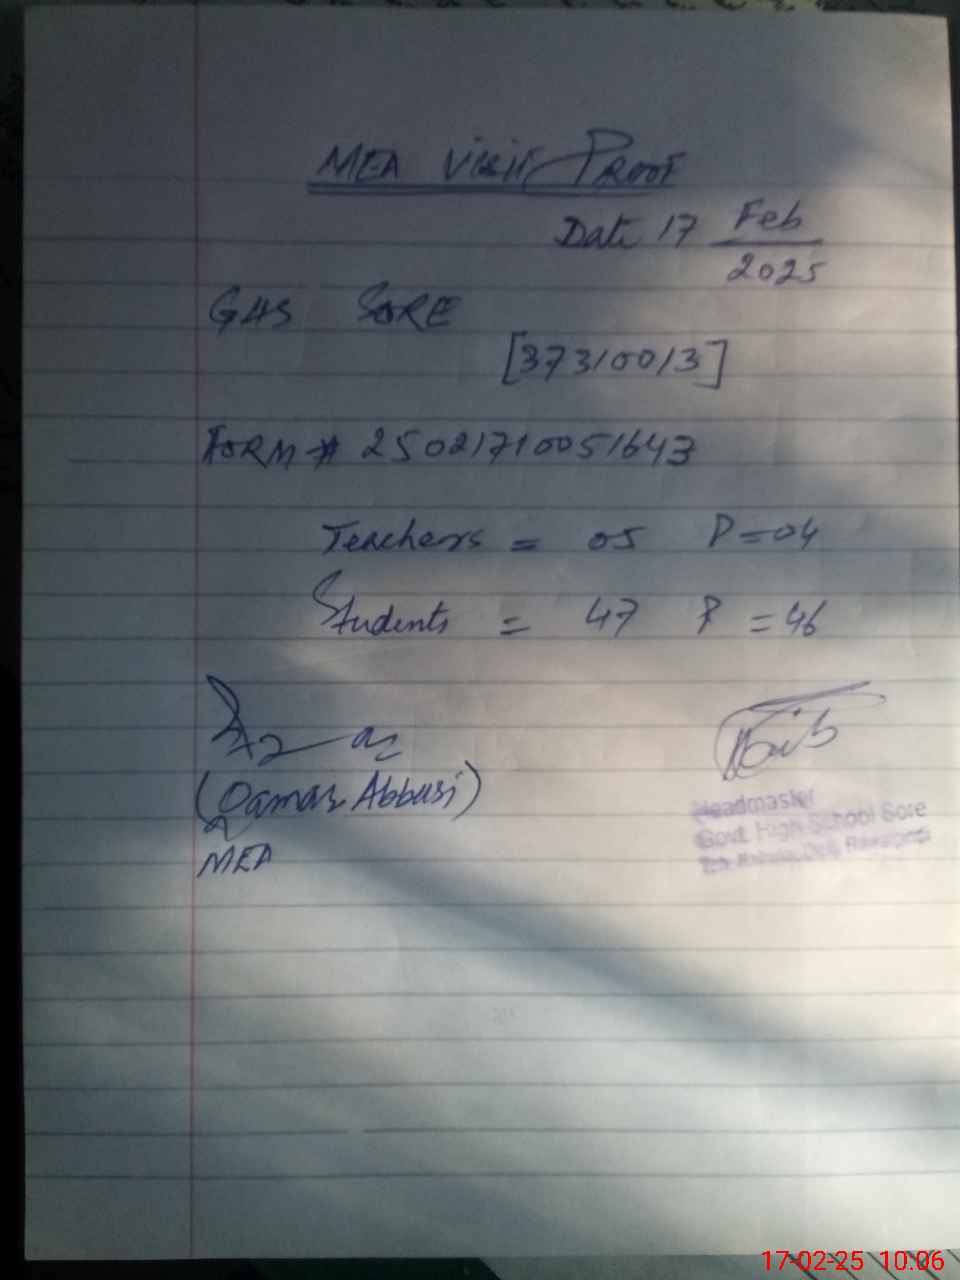 MEA Visit Proof
Date 17 Feb
2025
GHS SORE
[37310013]
FORM # 25021710051643
Teachers = 05 P = 04
Students = 47 P = 46
(Qamar Abbasi)
MEA
Headmaster
Govt. High School Sore
17-02-25 10:06